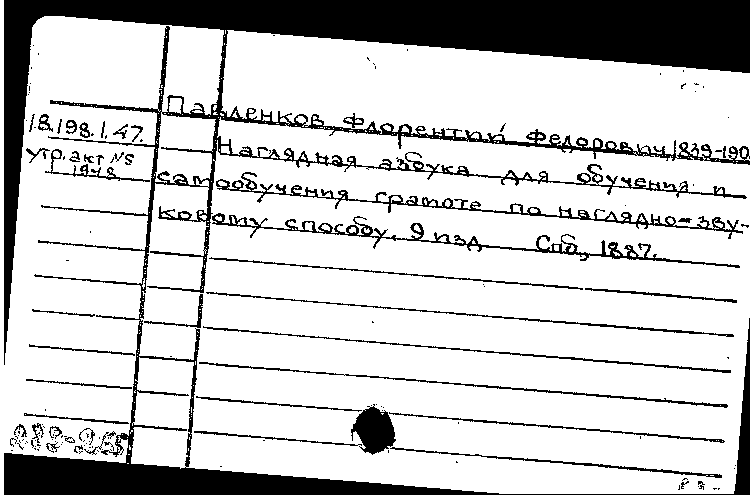 Павленков, Флорентий Федорович, 1839-190
18.198.1.47.
Наглядная азбука для обучения и
утр. акт №5
1948
самообучения грамоте по наглядно-зву-
ковому способу. 9 изд Спб., 1887.